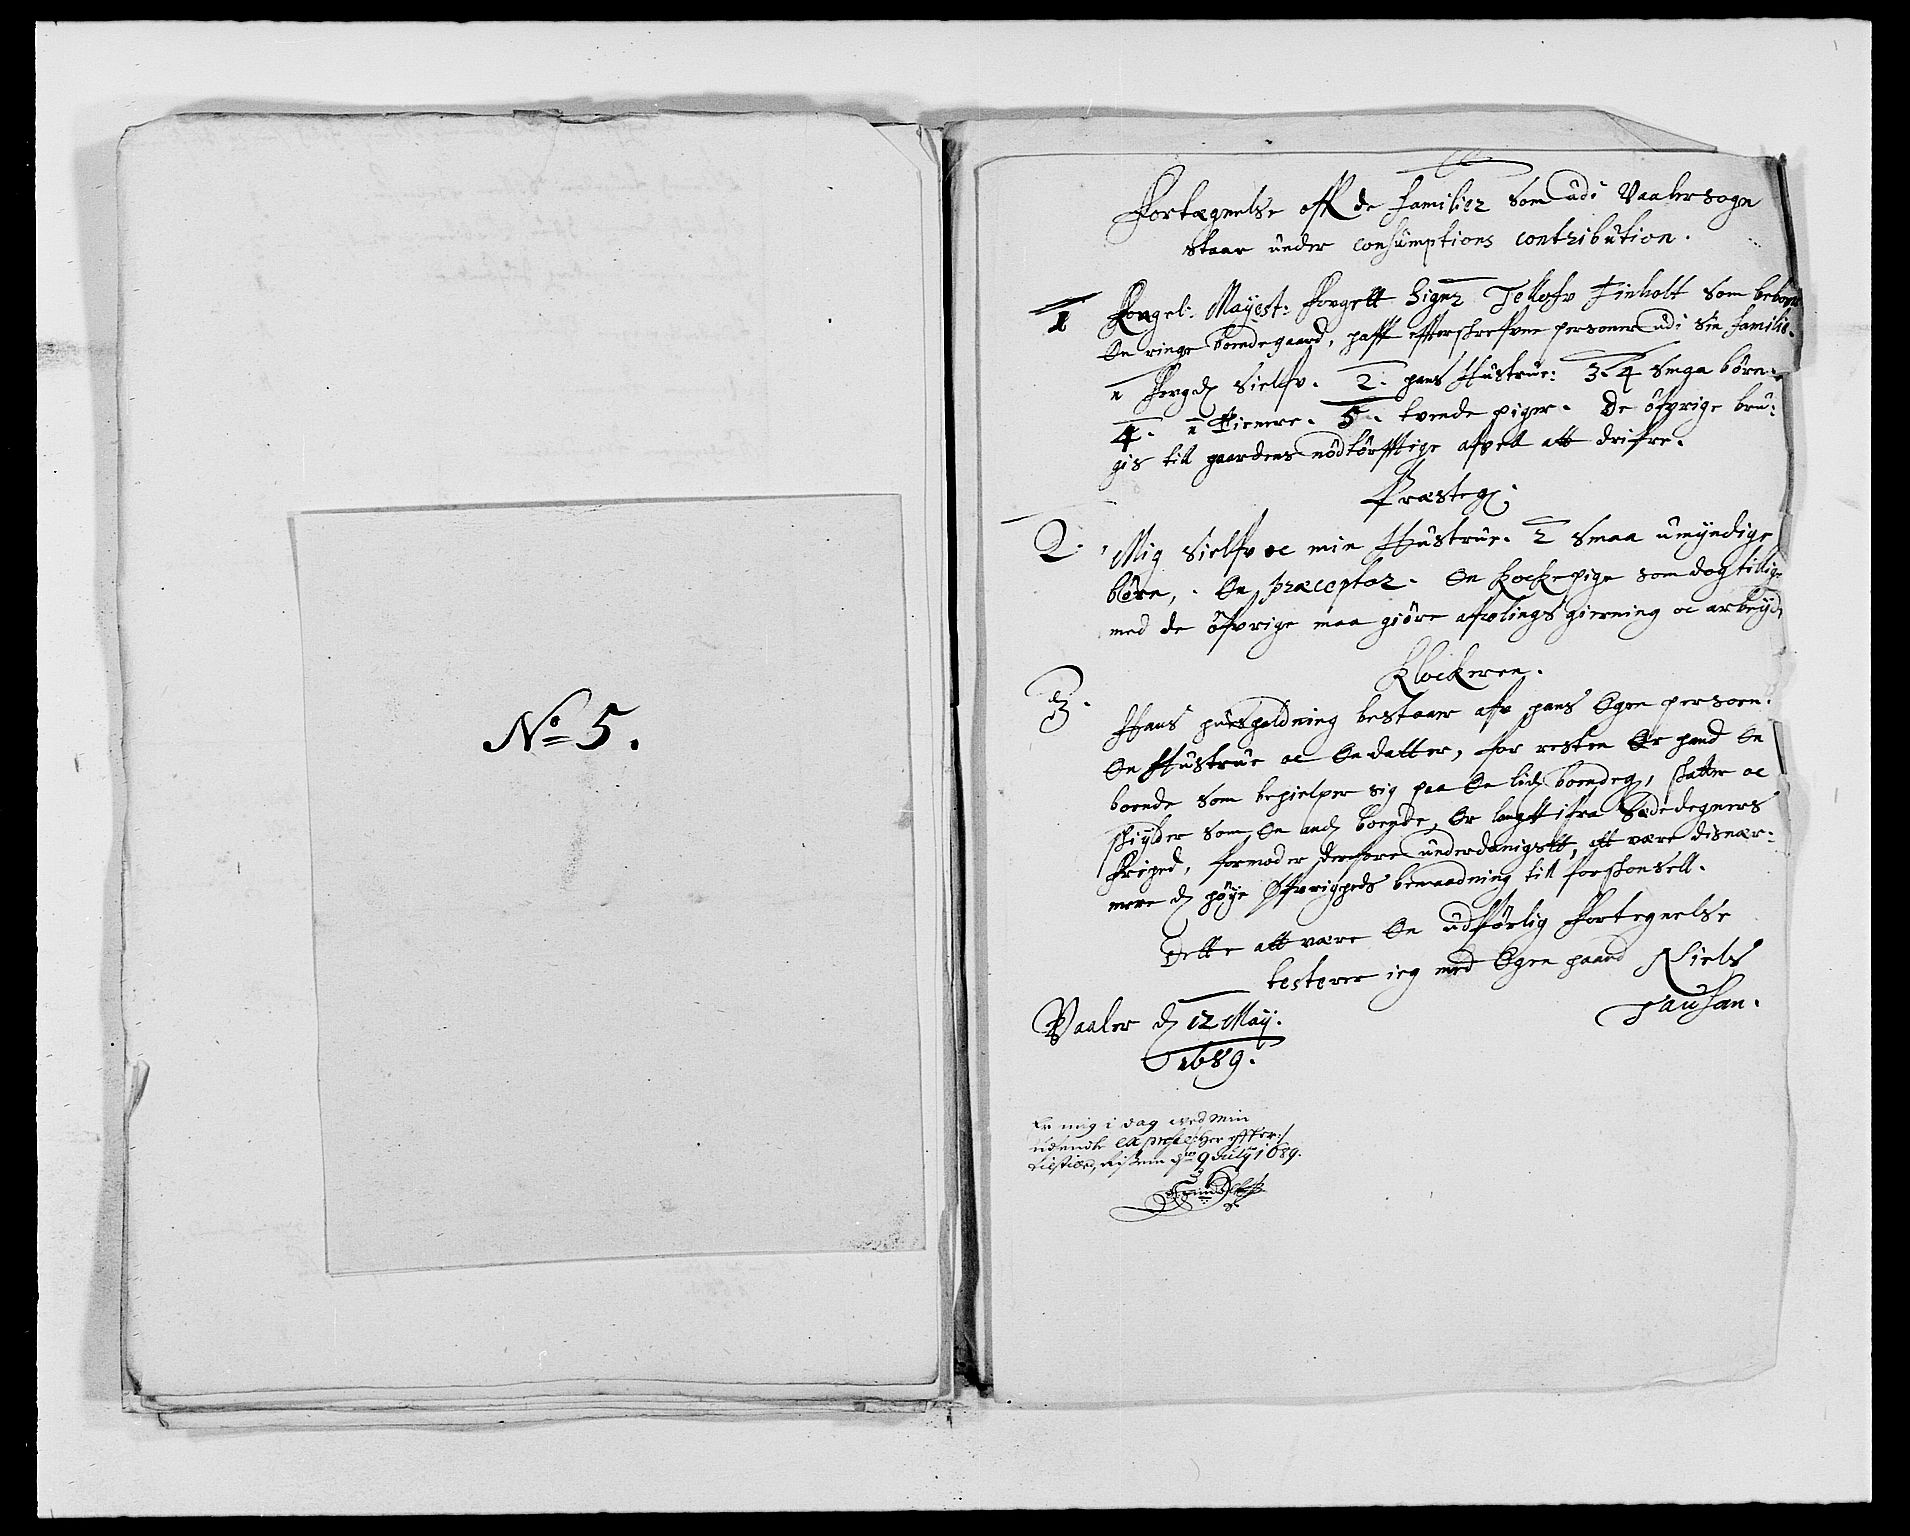 No 5.
Fortegnelse off de Familier som udi Vaaler sogn
staar under consumptions contribution.
1 Kongel: Mayest: Fougett Signr Tellofv Finholt som beboer
En ringe bondegaard, haffr effterschrefvne personer udi sin familie.
1 Fogd sielfv. 2. hans Hustrue: 3. 4 smaa børn.
4. 1 Tienere. 5. tvende piger. De öfvrige bru:
gis till gaardens nödtörfftige afvell att drifve.
Præsteg:
2. Mig sielfv oc min Hustrue. 2 smaa umyndige
børn, En Præceptor. En Kockepige som dog tillige
med de öfvrige maa giöre afvlings gierning oc arbeyd
Klockeren.
3. Hans huusholdning bestaar afv hans Egen person.
En Hustrue oc En datter, for resten Er hand En
bonde som behielper sig paa En liden bondeg, skatter oc
skylder som En anden bonde, Er langtt ifra Sædedegners
friihed, formoder derfore underdanigstt, att være disnær:
mere d høye Øfvrigheds benaadning till forskonsell.
Dette att være En udførlig Fortegnelse
testerer ieg med Egen haand Niels
Tausan.
Vaaler d 12 May.
1689.
Er mig i dag ved min
udsendte expresse her effter
tilstillet, d 9 July 1689.